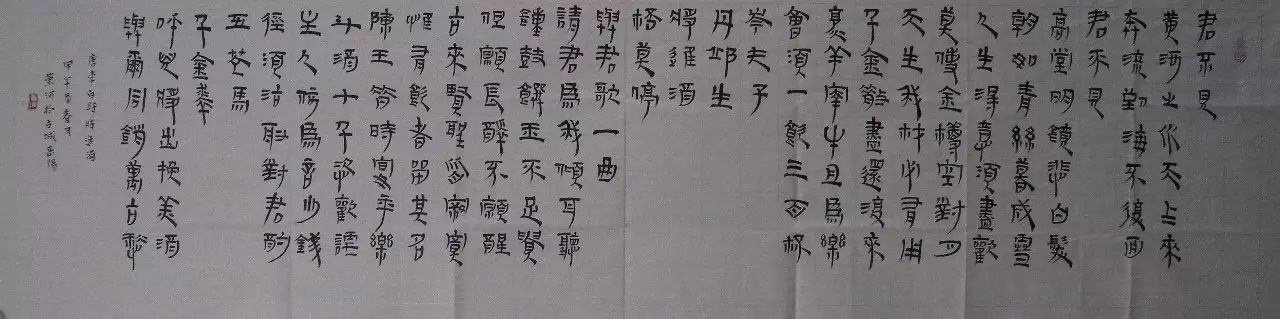 君不見
黃河之水天上來
奔流到海不復回
君不見
高堂明鏡悲白髮
朝如青絲暮成雪
人生得意須盡歡
莫使金樽空對月
天生我材必有用
千金散盡還復來
烹羊宰牛且為樂
會須一飲三百杯
岑夫子
丹邱生
將進酒
桮莫停
與君歌一曲
請君為我傾耳聽
鐘鼓饌玉不足貴
但願長醉不願醒
古來賢聖皆寂寞
惟有飲者留其名
陳王昔時宴平樂
斗酒十千恣歡謔
主人何為言少錢
徑須沽取對君酌
五花馬
千金裘
呼兒將出換美酒
與爾同銷萬古愁
唐李白詩將進酒
甲午年春月
於古城晉陽